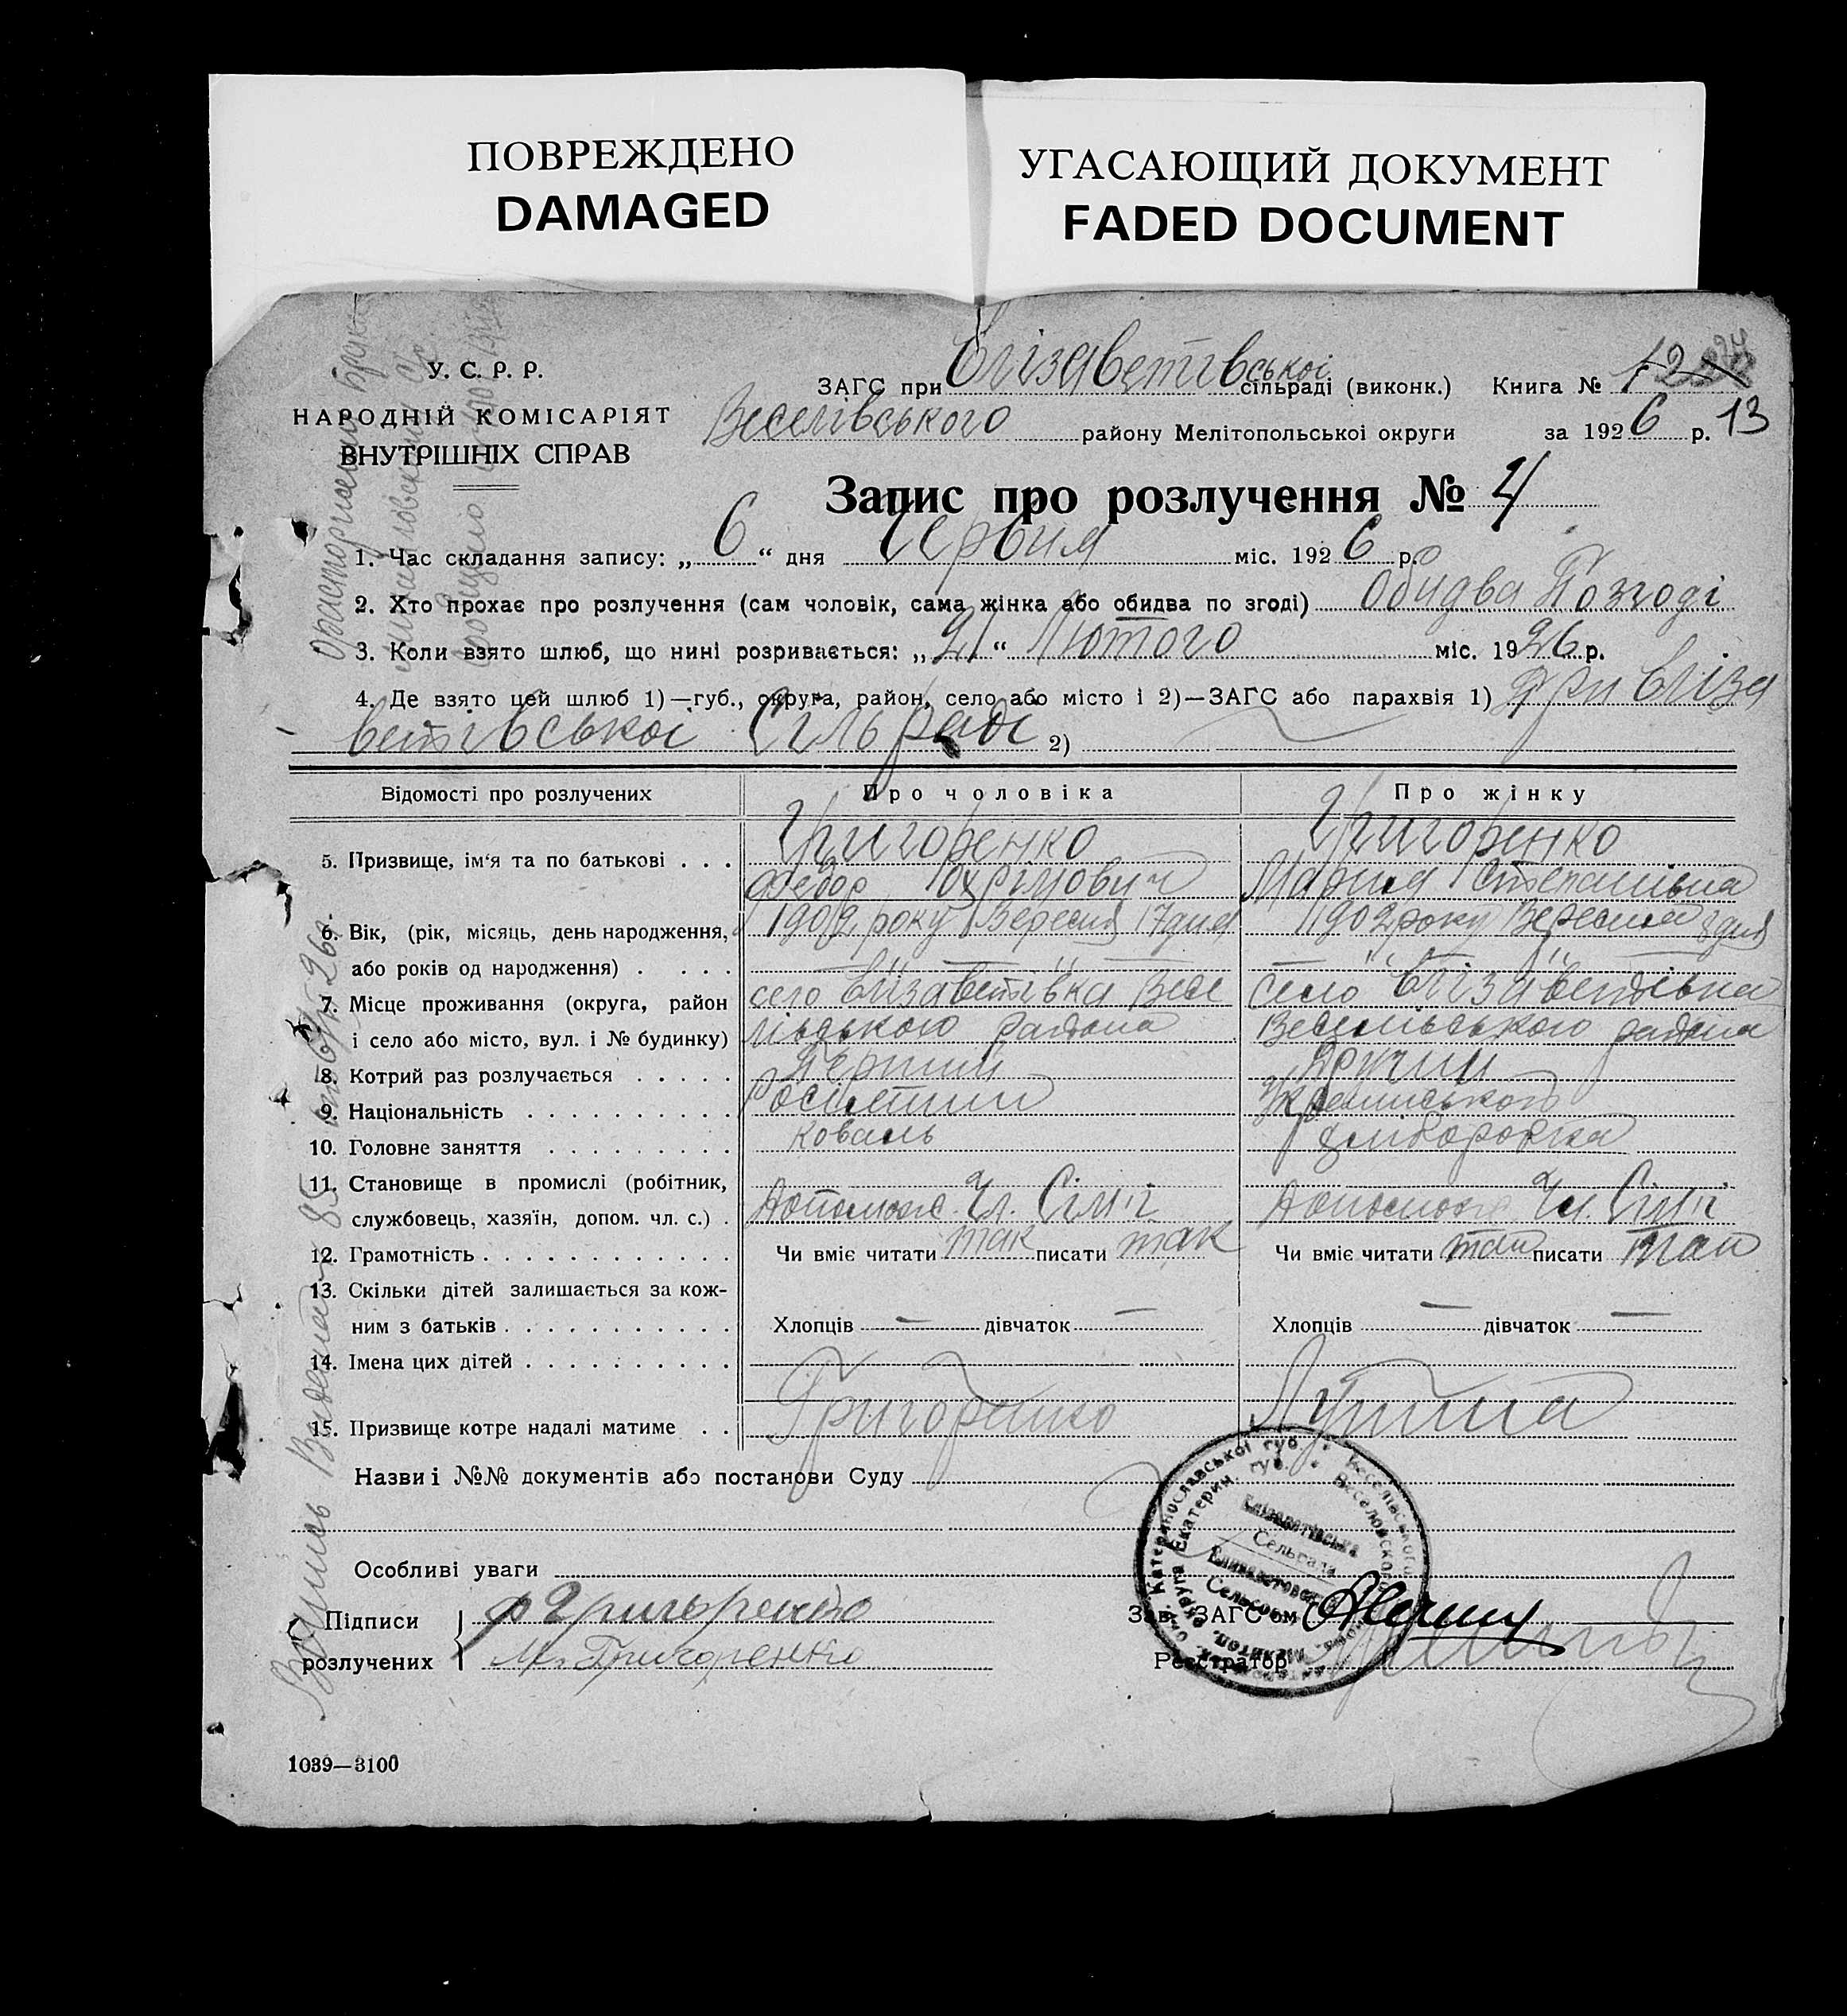 ПОВРЕЖДЕНО
DAMAGED
УГАСАЮЩИЙ ДОКУМЕНТ
FADED DOCUMENT
У. С. Р. Р.
НАРОДНІЙ КОМІСАРІЯТ
ВНУТРІШНІХ СПРАВ
ЗАГС при Єлізаветівської сільраді (виконк.) Книга № 12
Веселівського району Мелітопольської округи за 1926 р. 13
Запис про розлучення № 4
1. Час складання запису: „6“ дня Червня міс. 1926 р.
2. Хто прохає про розлучення (сам чоловік, сама жінка або обидва по згоді) Обидва По згоді
3. Коли взято шлюб, що нині розривається: „21“ Лютого міс. 1926 р.
4. Де взято цей шлюб 1)—губ., округа, район, село або місто і 2)—ЗАГС або парахвія 1) При Єліза
ветівської Сільраді 2)
Відомості про розлучених Про чоловіка Про жінку
5. Призвище, ім'я та по батькові . . . Григоренко Григоренко
Федор Юхримович Мария Степанівна
6. Вік, (рік, місяць, день народження, 1902 року Вересня 17 дня 1902 року Вересня 8 дня
або років од народження) . . . .
7. Місце проживання (округа, район село Єлізаветівка Весе село Єлізаветівка
і село або місто, вул. і № будинку) лівського района Веселівського района
8. Котрий раз розлучається . . . . . Перший Другий
9. Національність . . . . . . . . . .
10. Головне заняття . . . . . . . . . коваль хліборобка
11. Становище в промислі (робітник,
службовець, хазяїн, допом. чл. с.) . Допомож. Чл. Сім'ї Допомож. Чл. Сім'ї
12. Грамотність . . . . . . . . . . . Чи вміє читати так писати так Чи вміє читати так писати так
13. Скільки дітей залишається за кож-
ним з батьків . . . . . . . . . . . Хлопців — дівчаток — Хлопців — дівчаток —
14. Імена цих дітей . . . . . . . . . .
15. Призвище котре надалі матиме . . Григоренко
Назви і №№ документів або постанови Суду
Особливі уваги
Підписи розлучених
Ф Григоренко
М. Григоренко
Зав. ЗАГС'ом
Реєстратор
1039—3100